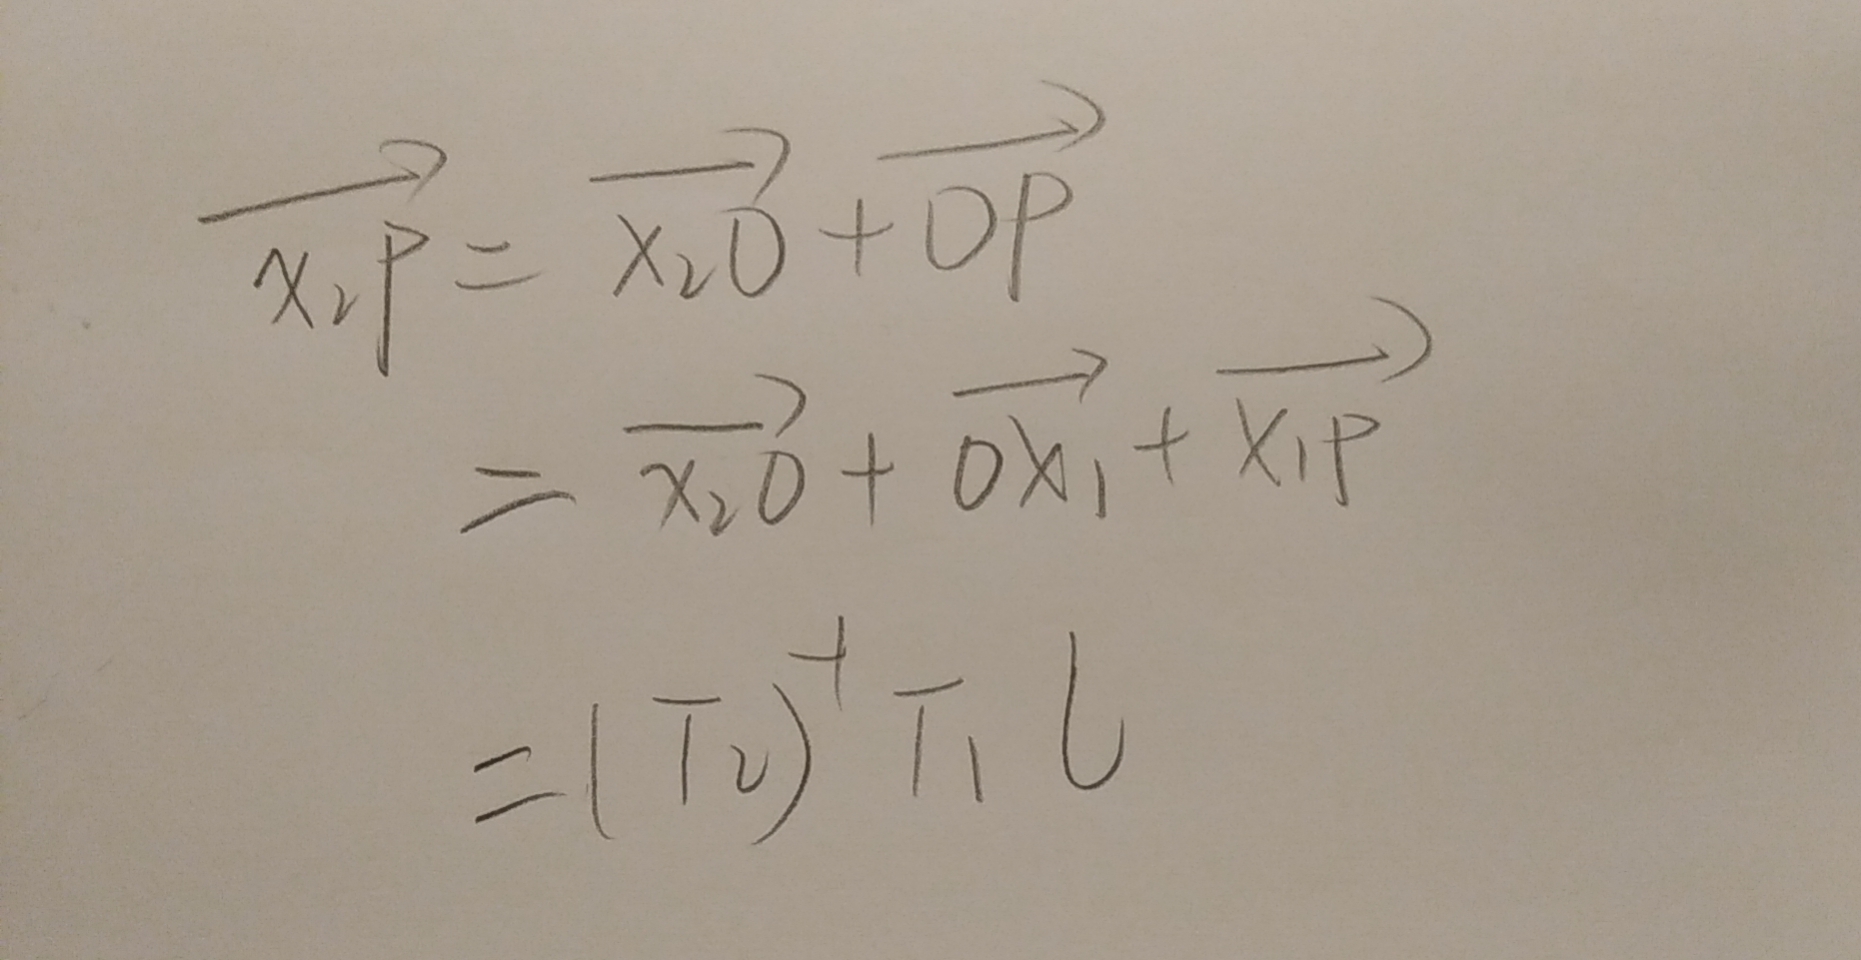 $\overrightarrow{x_2P} = \overrightarrow{x_2O} + \overrightarrow{OP}$
$= \overrightarrow{x_2O} + \overrightarrow{Ox_1} + \overrightarrow{x_1P}$
$= (T_2)^+ T_1 l$